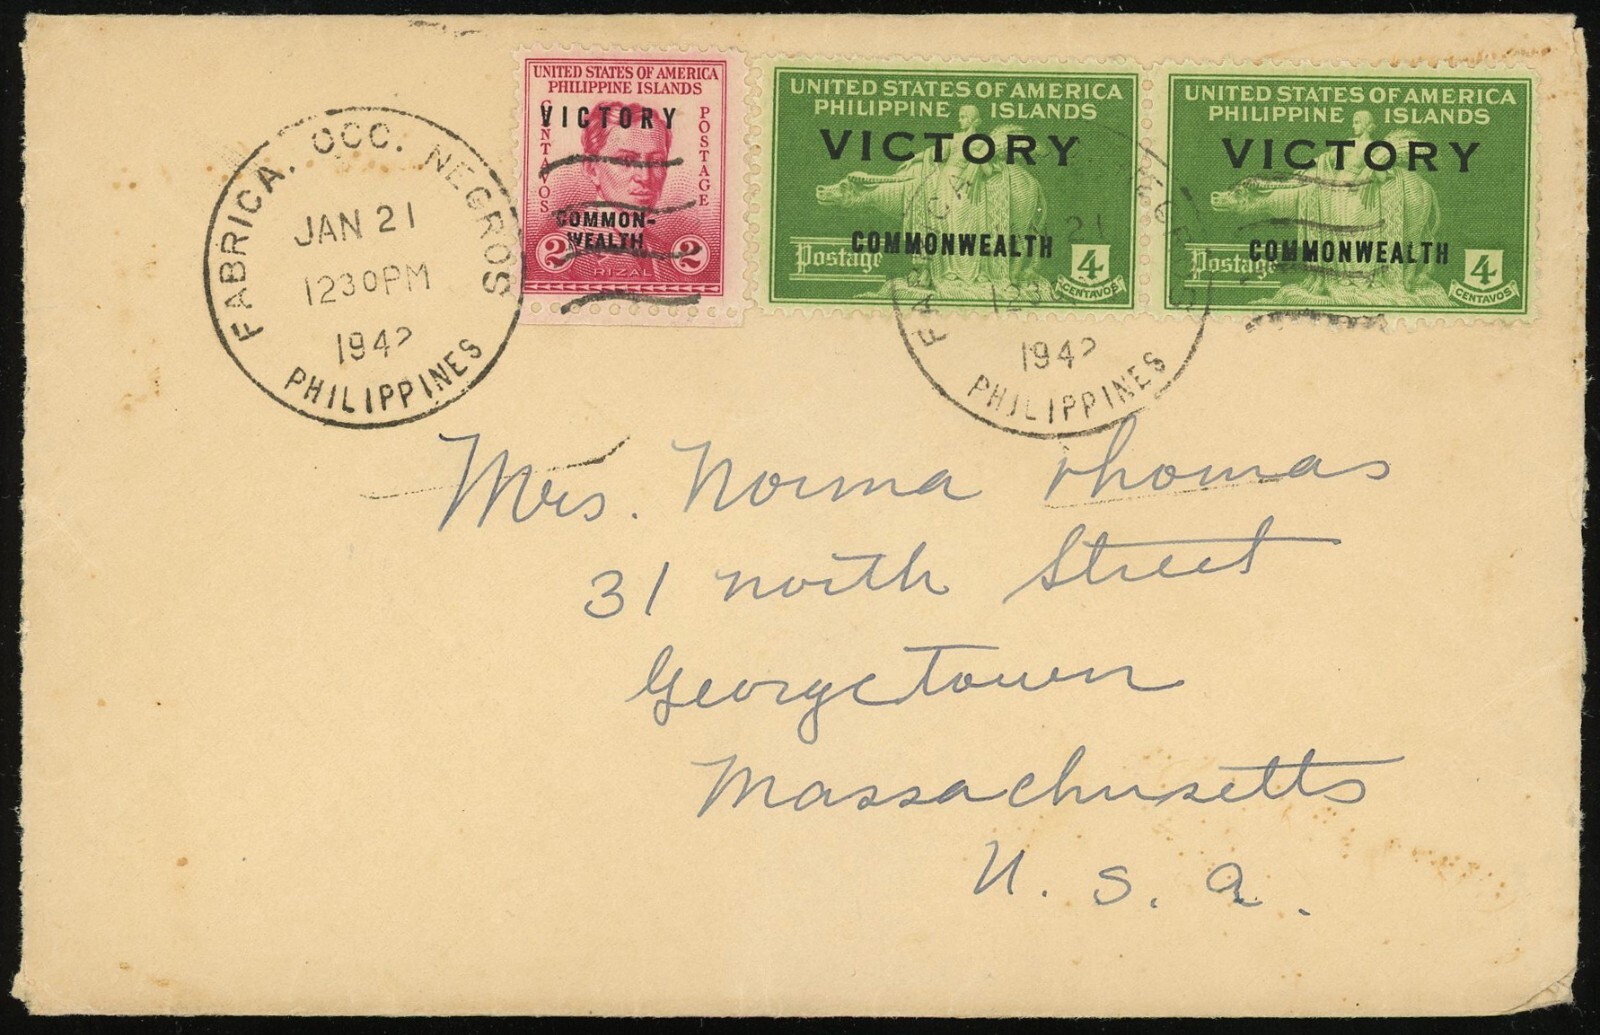 FABRICA. OCC. NEGROS
JAN 21
1230PM
1942
PHILIPPINES
UNITED STATES OF AMERICA
PHILIPPINE ISLANDS
CENTAVOS
POSTAGE
VICTORY
COMMON-
WEALTH
2 2
RIZAL
UNITED STATES OF AMERICA
PHILIPPINE ISLANDS
VICTORY
COMMONWEALTH
Postage
4
CENTAVOS
UNITED STATES OF AMERICA
PHILIPPINE ISLANDS
VICTORY
COMMONWEALTH
Postage
4
CENTAVOS
21
1230
1942
PHILIPPINES
Mrs. Norma Thomas
31 North Street
Georgetown
Massachusetts
U. S. A.